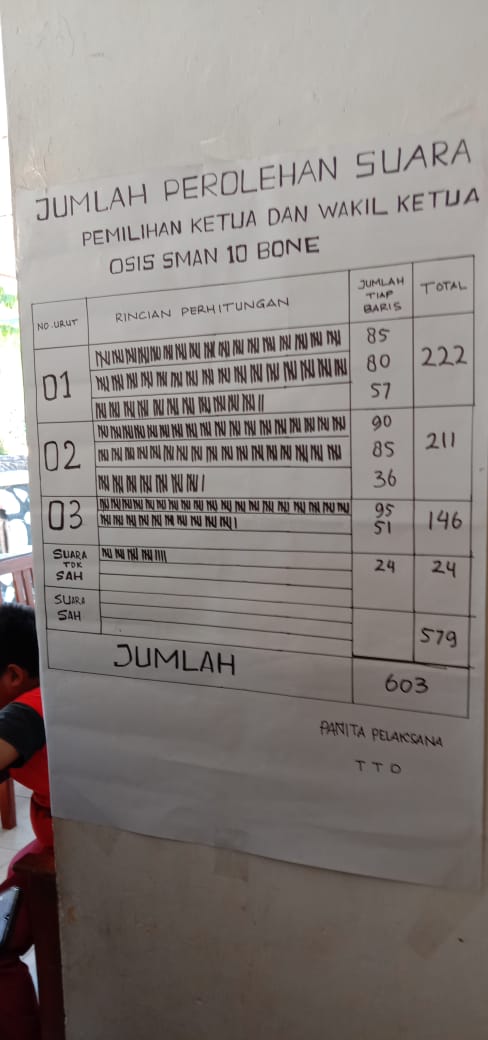 JUMLAH PEROLEHAN SUARA
PEMILIHAN KETUA DAN WAKIL KETUA
OSIS SMAN 10 BONE
NO.URUT RINCIAN PERHITUNGAN JUMLAH TIAP BARIS TOTAL
01 85 222
80
57
02 90 211
85
36
03 95 146
51
SUARA TDK SAH 24 24
SUARA SAH 579
JUMLAH 603
PANITA PELAKSANA
TTD